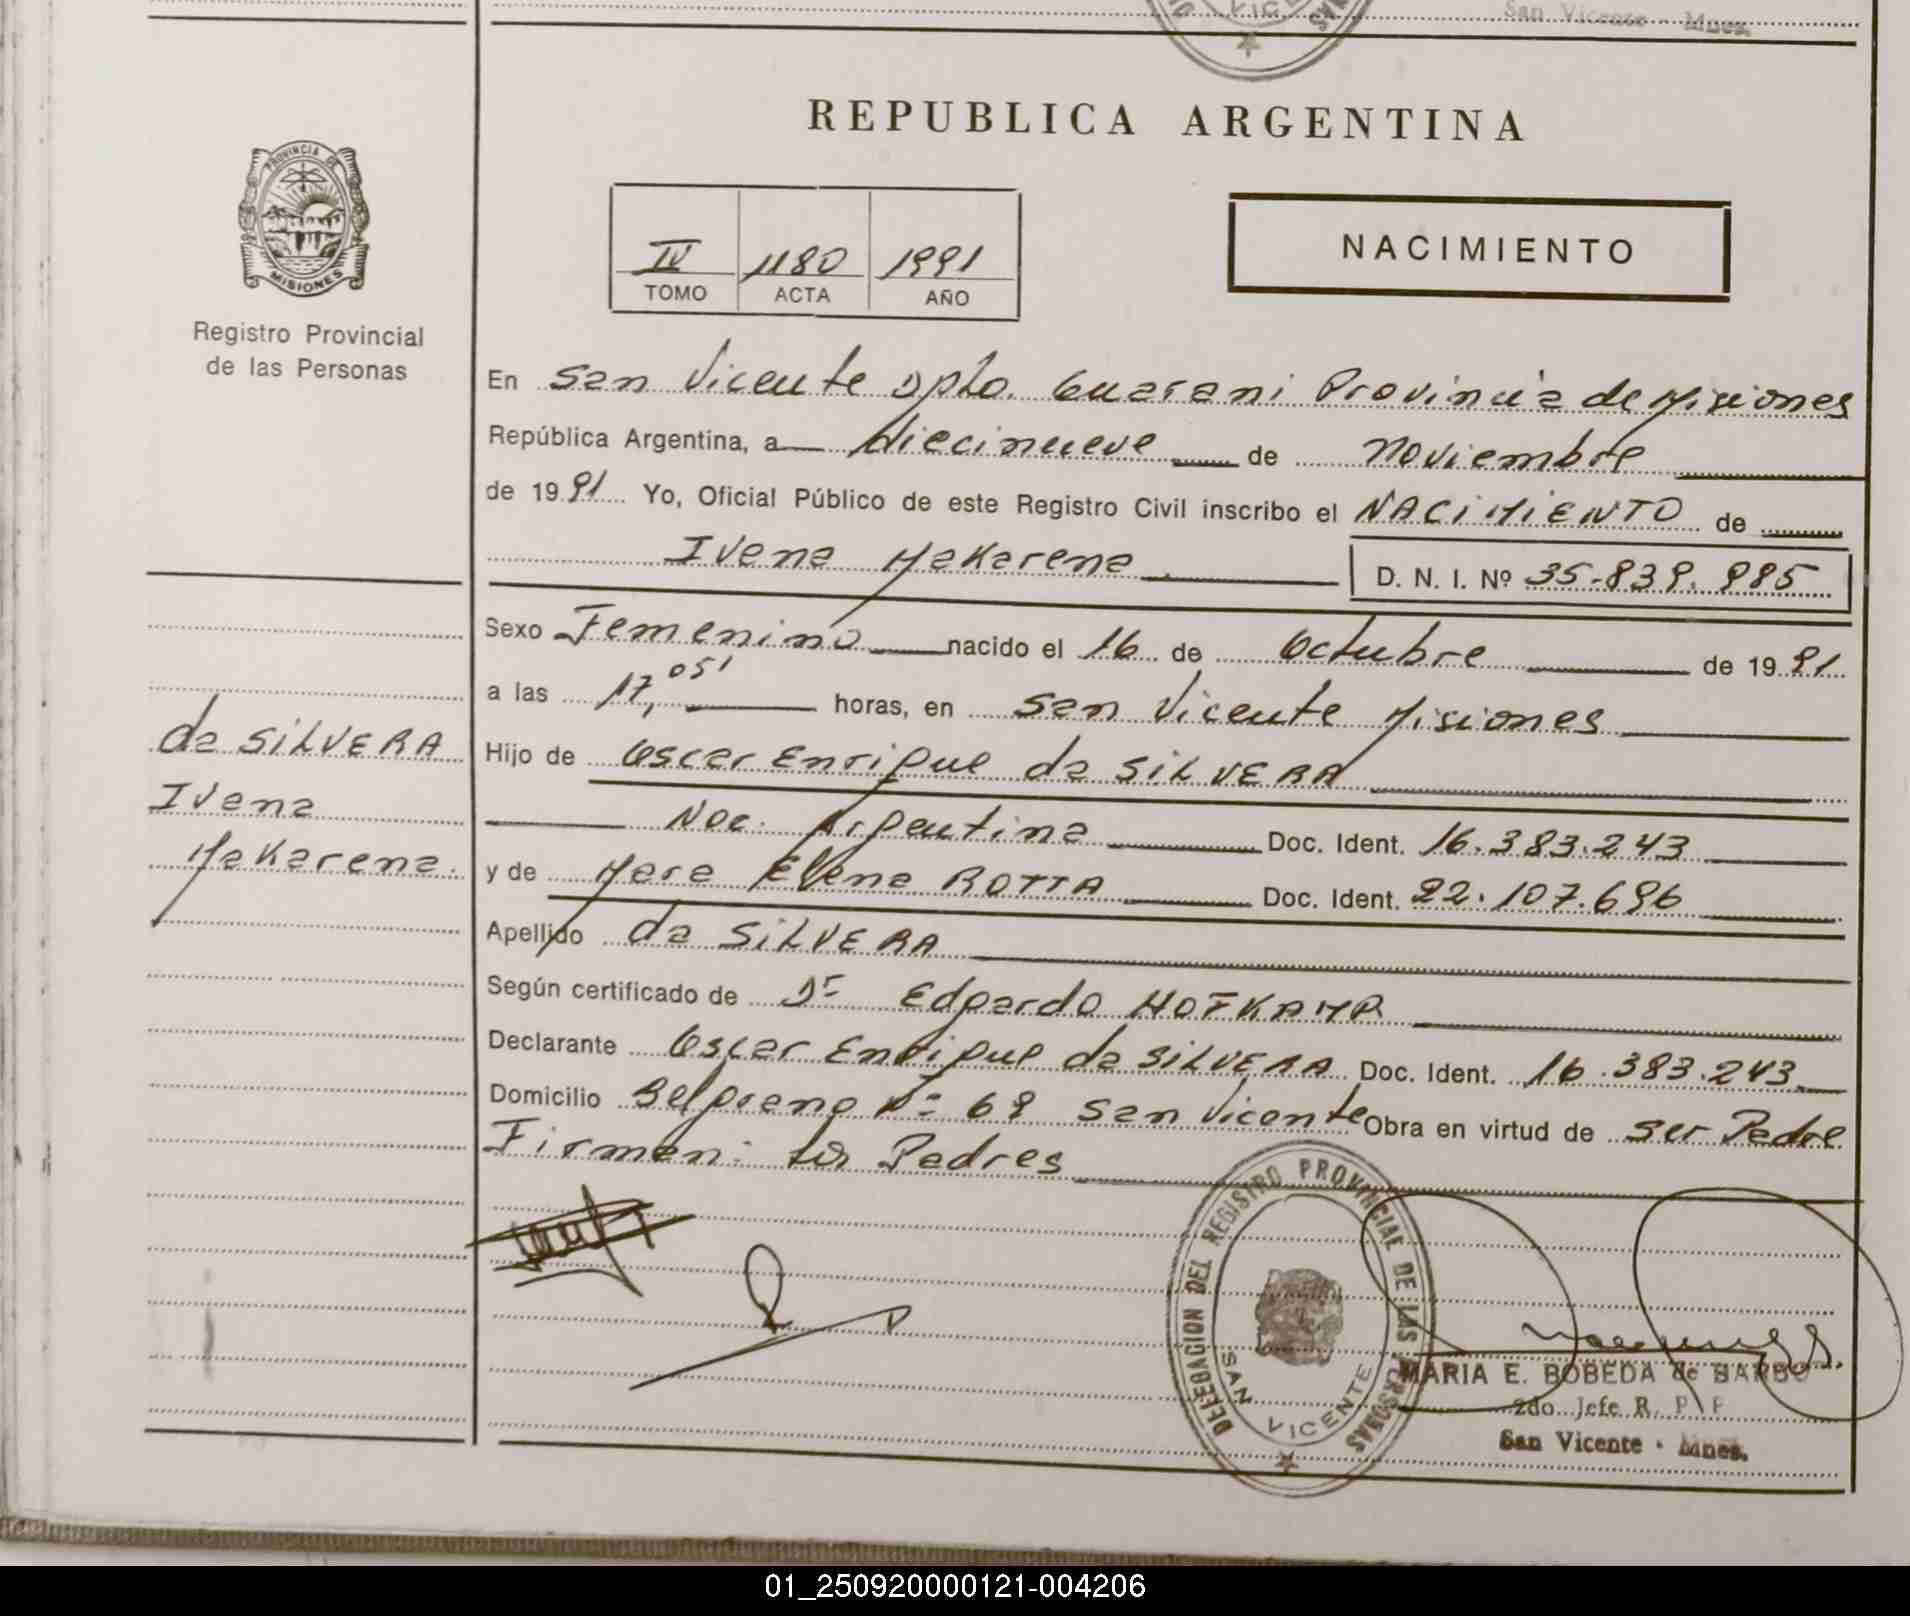 San Vicente - Mnes.
REPUBLICA ARGENTINA
PROVINCIA DE MISIONES
Registro Provincial
de las Personas
IV 1180 1991
TOMO ACTA AÑO
NACIMIENTO
En San Vicente Dpto. Guarani Provincia de Misiones
República Argentina, a diecinueve de Noviembre
de 1991 Yo, Oficial Público de este Registro Civil inscribo el NACIMIENTO de
Ivana Makarena D. N. I. Nº 35.839.985
Sexo Femenino nacido el 16 de Octubre de 1991
a las 17,05' horas, en San Vicente Misiones
da SILVERA
Ivana
Makarena.
Hijo de Oscar Enrique da SILVERA
Nac. Argentina Doc. Ident. 16.383.243
y de Mara Elena ROTTA Doc. Ident. 22.107.696
Apellido da SILVERA
Según certificado de Dr Edgardo HOFKAMP
Declarante Oscar Enrique da SILVERA Doc. Ident. 16.383.243
Domicilio Belgrano Nº 69 San Vicente Obra en virtud de ser Padre
Firman: los Padres
DELEGACION DEL REGISTRO PROVINCIAL DE LAS PERSONAS
SAN VICENTE
MARIA E. BOBEDA de BARBO
2do. Jefe R. P. P
San Vicente - Mnes.
01_250920000121-004206